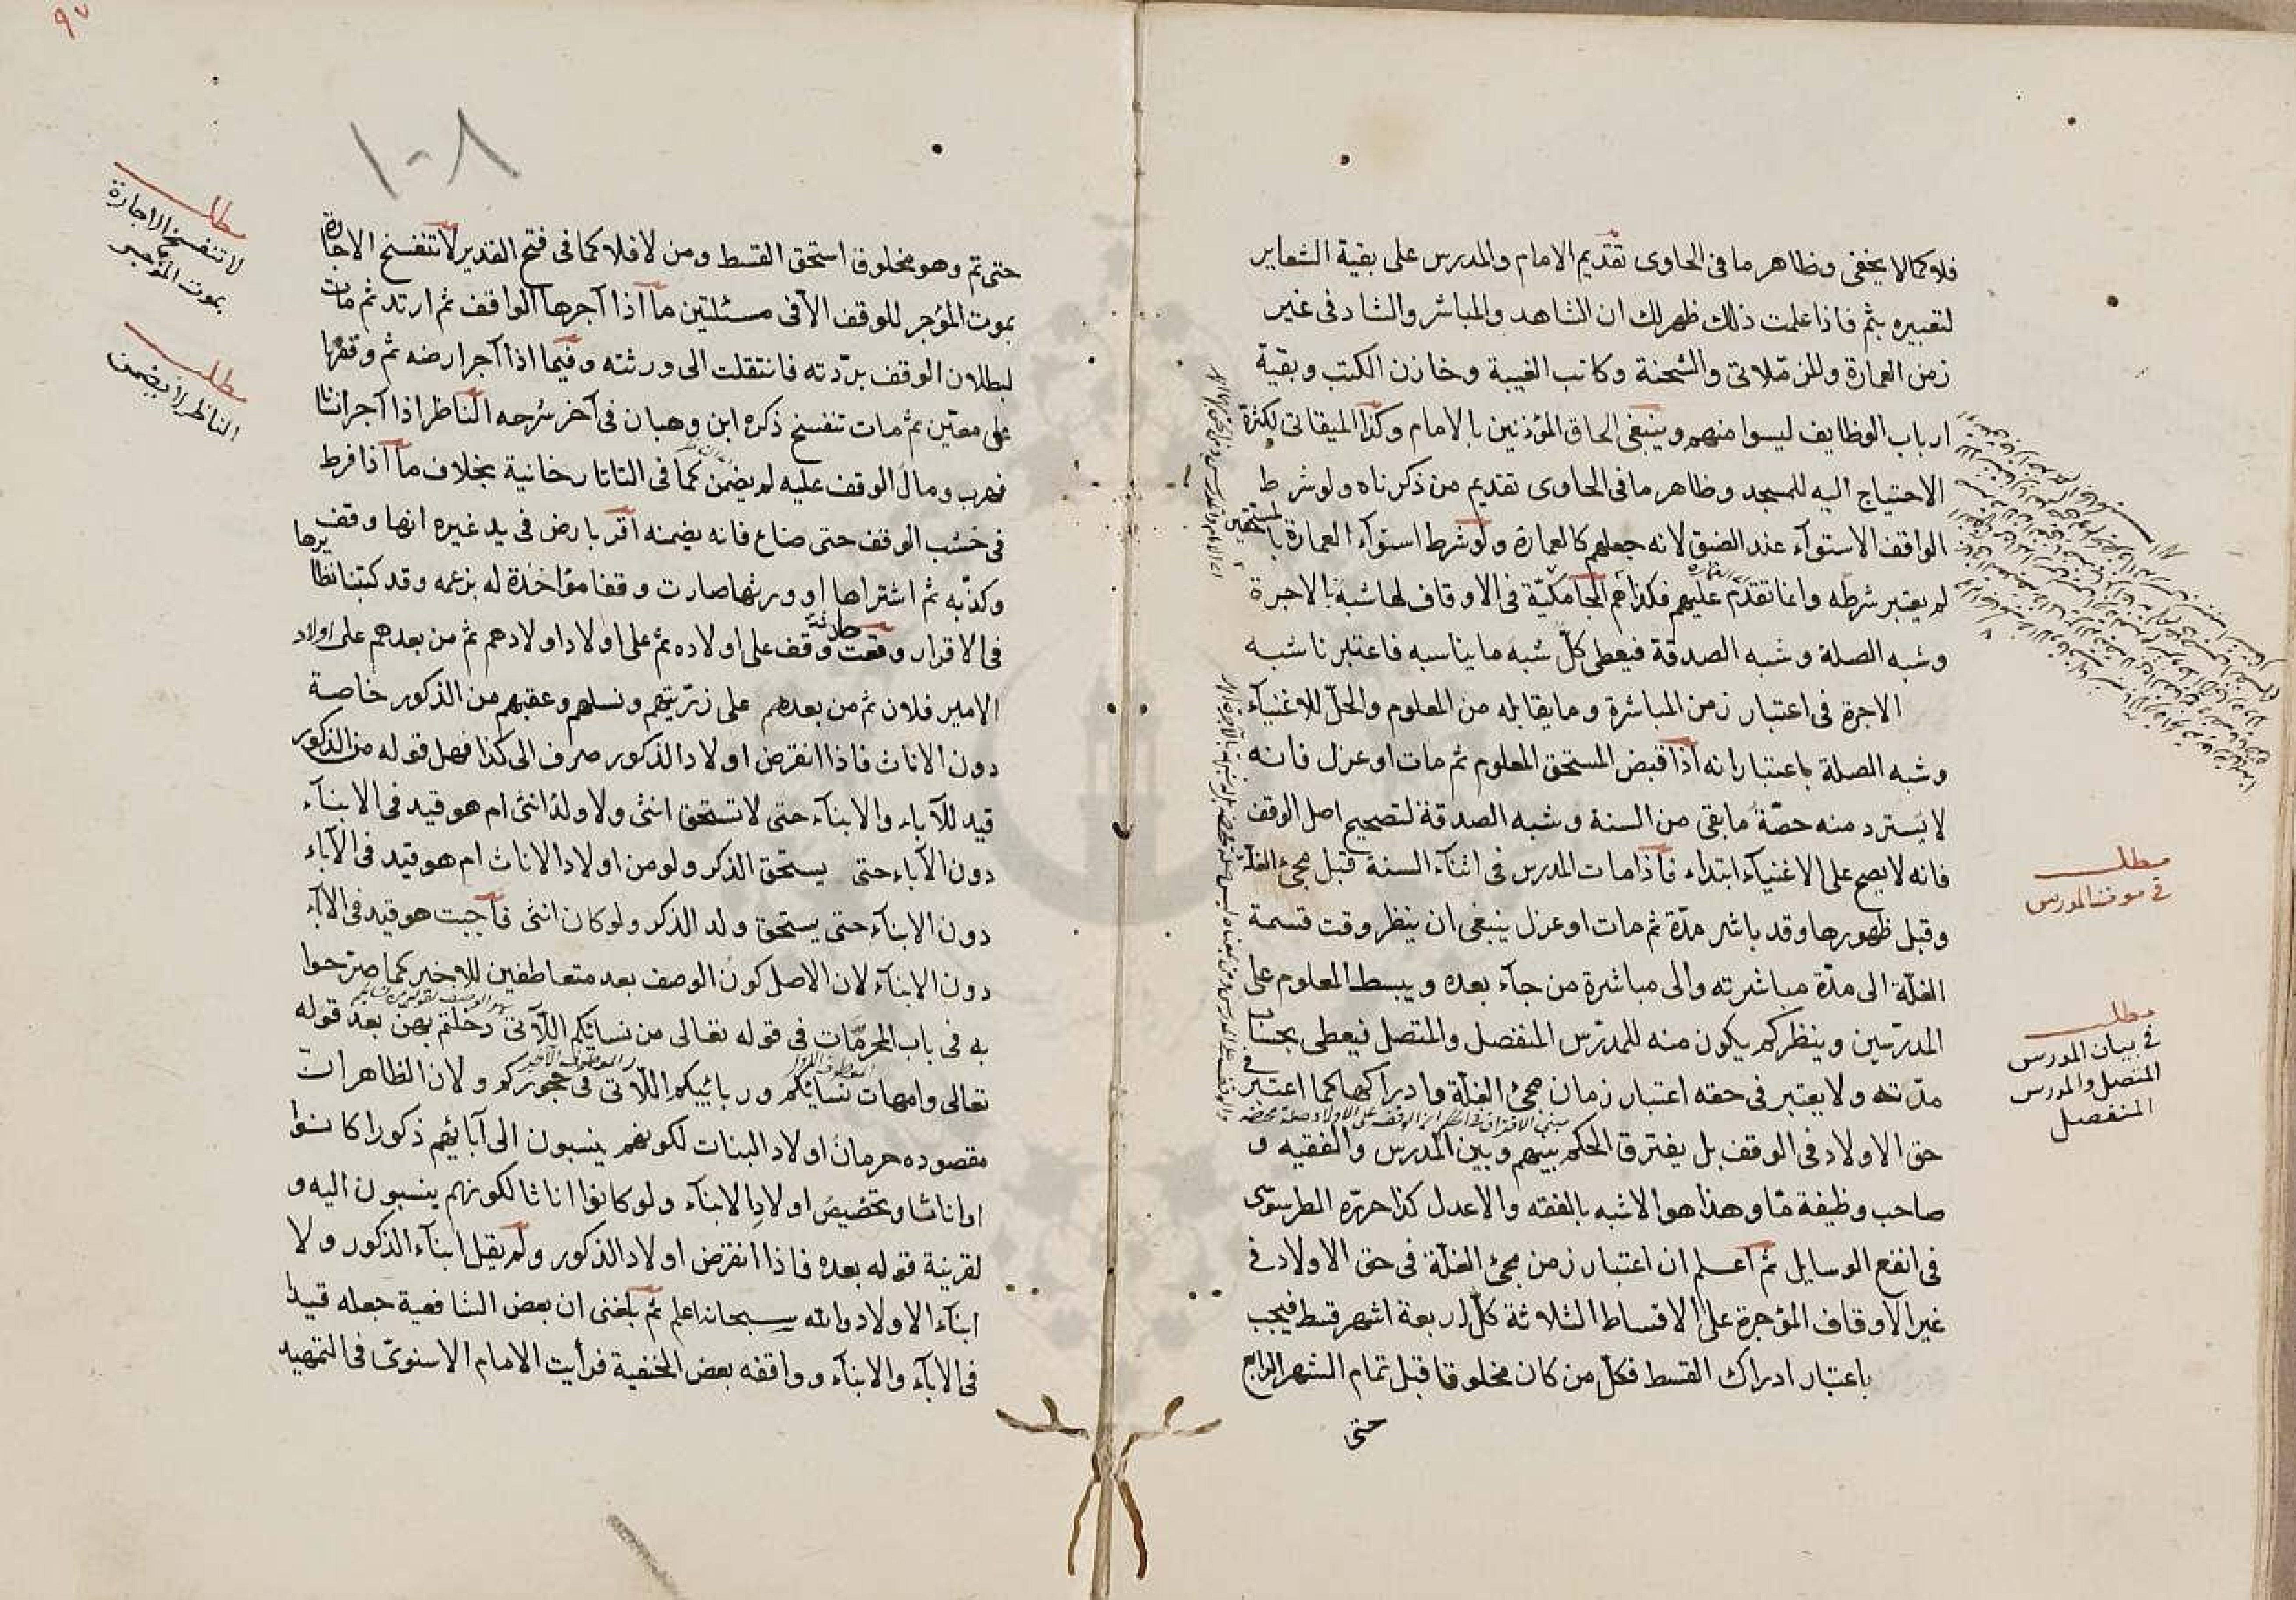 فلا كما لا يخفى وظاهر ما فى الحاوى تقديم الامام والمدرس على بقية الشعاير
لتعبيره بثم فاذا علمت ذلك ظهر لك ان الشاهد والمباشر والشاد فى غير
زمن العمارة والمزملاتى والشحنة وكاتب الغيبة وخازن الكتب وبقية
ارباب الوظايف ليسوا منهم وينبغى الحاق المؤذنين بالامام وكذا الميقاتى لكثرة
الاحتياج اليه للمسجد وظاهر ما فى الحاوى تقديم من ذكرناه ولو شرط
الواقف الاستوآء عند الضيق لانه جعلهم كالعمارة ولو شرط استوآء العمارة بالمستحقين
لم يعتبر شرطه وانما تقدم عليهم فكذا هم الجامكيّة فى الاوقاف لها شبه بالاجرة
وشبه الصلة وشبه الصدقة فيعطى كلّ شبه ما يناسبه فاعتبرنا شبه
الاجرة فى اعتبار زمن المباشرة وما يقابله من المعلوم والحلّ للاغنيآء
وشبه الصلة باعتبار انه اذا قبض المستحق المعلوم ثم مات او عزل فانه
لا يسترد منه حصّة ما بقى من السنة وشبه الصدقة لتصحيح اصل الوقف
فانه لا يصح على الاغنيآء ابتداء فاذا مات المدرس فى اثنآء السنة قبل مجئ الغلة
وقبل ظهورها وقد باشر مدّة ثم مات او عزل ينبغى ان ينظر وقت قسمة
الغلّة الى مدّة مباشرته والى مباشرة من جآء بعده ويبسط المعلوم على
المدرّسين وينظر كم يكون منه للمدرّس المنفصل والمتصل فيعطى بحساب
مدّته ولا يعتبر فى حقه اعتبار زمان مجئ الغلّة وادراكها كما اعتبر فى
حق الاولاد فى الوقف بل يفترق الحكم بينهم وبين المدرس والفقيه و
صاحب وظيفة مّا وهذا هو الاشبه بالفقه والاعدل كذا حرّره الطرسوسى
فى انفع الوسايل ثم اعلم ان اعتبار زمن مجئ الغلّة فى حق الاولاد فى
غير الاوقاف المؤجرة على الاقساط الثلاثة كلّ اربعة اشهر قسط فيجب
باعتبار ادراك القسط فكلّ من كان مخلوقا قبل تمام الشهر الرابع
حتى
مطلب
فى موت المدرس
مطلب
فى بيان المدرس
المتصل والمدرس
المنفصل
١٠٨
حتى تم وهو مخلوق استحق القسط ومن لا فلا كما فى فتح القدير لا تنفسخ الاجارة
بموت المؤجر للوقف الا فى مسئلتين ما اذا آجرها الواقف ثم ارتد ثم مات
لبطلان الوقف بردّته فانتقلت الى ورثته وفيما اذا آجر ارضه ثم وقفها
على معيّن ثم مات تنفسخ ذكره ابن وهبان فى آخر شرحه الناظر اذا آجر انسانا
فهرب ومال الوقف عليه لم يضمن كما فى التاتارخانية بخلاف ما اذا فرط
فى خشب الوقف حتى ضاع فانه يضمنه اقر بارض فى يد غيره انها وقف
وكذّبه ثم اشتراها او ورثها صارت وقفا مؤاخذة له بزعمه وقد كتبنا نظايرها
فى الاقرار وقعت حادثة وقف على اولاده ثم على اولاد اولادهم ثم من بعدهم على اولاد
الامير فلان ثم من بعدهم على ذرّيّتهم ونسلهم وعقبهم من الذكور خاصة
دون الاناث فاذا انقرض اولاد الذكور صرف الى كذا فهل قوله من الذكور
قيد للآباء والابنآء حتى لا تستحق انثى ولا ولد انثى ام هو قيد فى الابنآء
دون الآباء حتى يستحق الذكر ولو من اولاد الاناث ام هو قيد فى الآباء
دون الابنآء حتى يستحق ولد الذكر ولو كان انثى فاجبت هو قيد فى الآباء
دون الابنآء لان الاصل كون الوصف بعد متعاطفين للاخير كما صرّحوا
به فى باب المحرّمات فى قوله تعالى من نسائكم اللآتى دخلتم بهن بعد قوله
تعالى وامهات نسائكم وربائبكم اللاتى فى حجوركم ولان الظاهر ان
مقصوده حرمان اولاد البنات لكونهم ينسبون الى آبائهم ذكورا كانوا
او اناثا وتخصيص اولاد الابنآء ولو كانوا اناثا لكونهم ينسبون اليه و
لقرينة قوله بعده فاذا انقرض اولاد الذكور ولم يقل ابنآء الذكور ولا
ابنآء الاولاد والله سبحانه اعلم ثم بلغنى ان بعض الشافعية جعله قيدا
فى الآبآء والابنآء ووافقه بعض الحنفية فرأيت الامام الاسنوىّ فى التمهيد
مطلب
لا تنفسخ الاجارة
بموت المؤجر
مطلب
الناظر لا يضمن